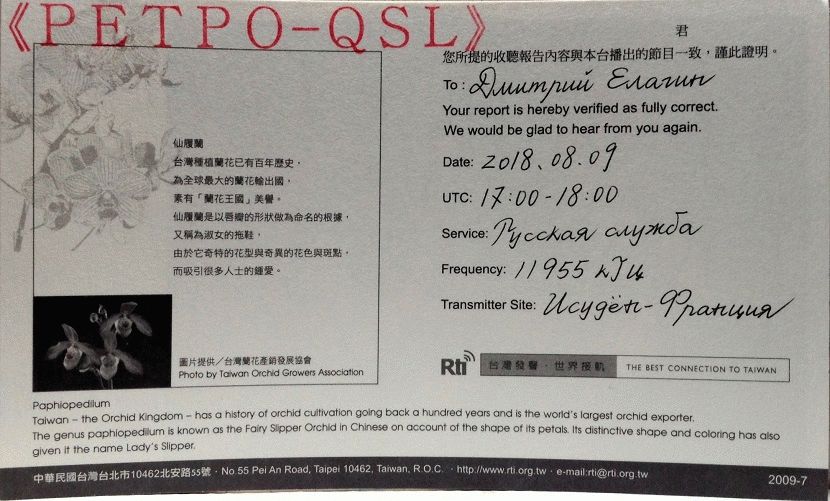 《РЕТРО-QSL》
仙履蘭
台灣種植蘭花已有百年歷史，
為全球最大的蘭花輸出國，
素有「蘭花王國」美譽。
仙履蘭是以唇瓣的形狀做為命名的根據，
又稱為淑女的拖鞋，
由於它奇特的花型與奇異的花色與斑點，
而吸引很多人士的鍾愛。
圖片提供／台灣蘭花產銷發展協會
Photo by Taiwan Orchid Growers Association
君
您所提的收聽報告內容與本台播出的節目一致，謹此證明。
To : Дмитрий Елагин
Your report is hereby verified as fully correct.
We would be glad to hear from you again.
Date: 2018.08.09
UTC: 17:00-18:00
Service: Русская служба
Frequency: 11955 кГц
Transmitter Site: Исудён-Франция
Rti 台灣發聲·世界接軌 THE BEST CONNECTION TO TAIWAN
Paphiopedilum
Taiwan – the Orchid Kingdom – has a history of orchid cultivation going back a hundred years and is the world's largest orchid exporter.
The genus paphiopedilum is known as the Fairy Slipper Orchid in Chinese on account of the shape of its petals. Its distinctive shape and coloring has also
given it the name Lady's Slipper.
中華民國台灣台北市10462北安路55號 · No.55 Pei An Road, Taipei 10462, Taiwan, R.O.C. · http://www.rti.org.tw · e-mail:rti@rti.org.tw 2009-7